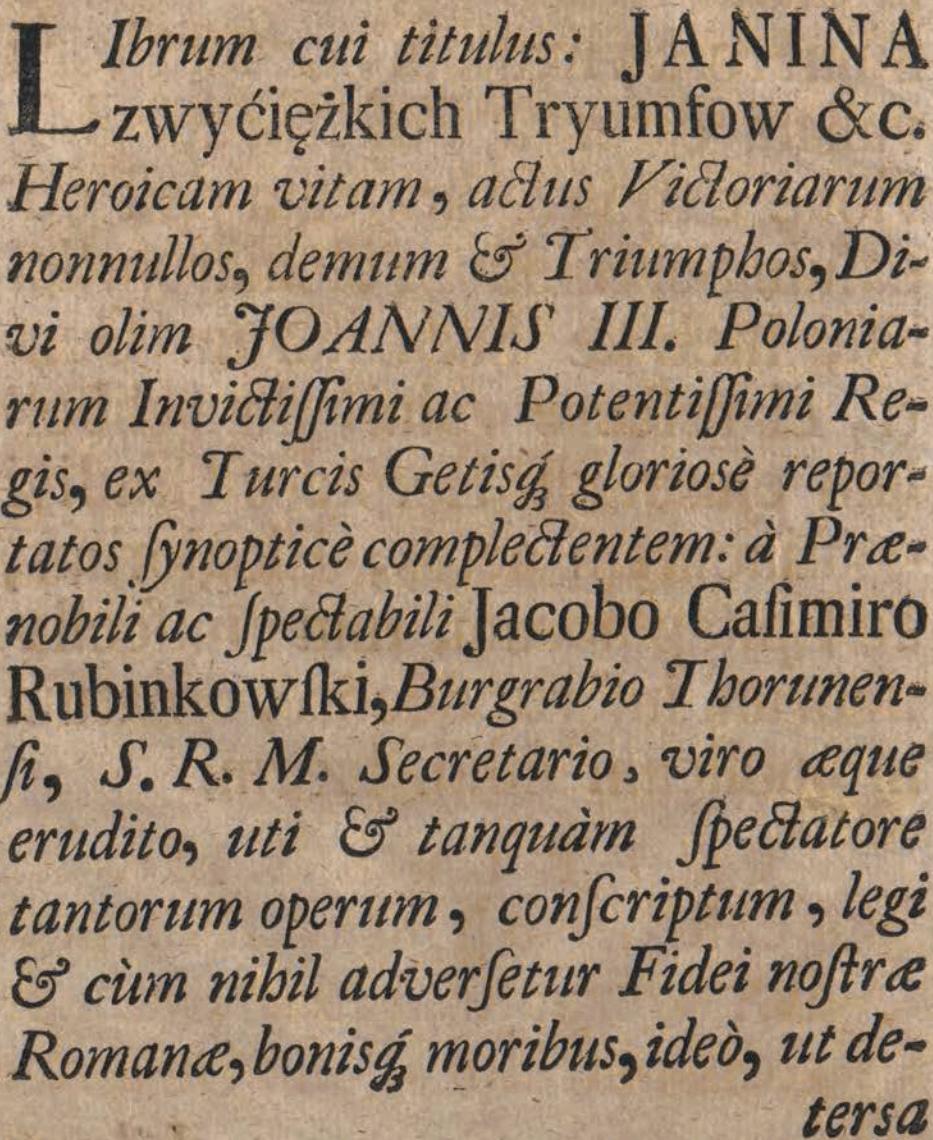 LIbrum cui titulus: JANINA
zwyćiężkich Tryumfow &c.
Heroicam vitam, actus Victoriarum
nonnullos, demum & Triumphos, Di-
vi olim JOANNIS III. Polonia-
rum Invictiſſimi ac Potentiſſimi Re-
gis, ex Turcis Getisq́; glorioſè repor-
tatos ſynopticè complectentem: à Præ-
nobili ac ſpectabili Jacobo Caſimiro
Rubinkowſki, Burgrabio Thorunen-
ſi, S. R. M. Secretario, viro æque
erudito, uti & tanquàm ſpectatore
tantorum operum, conſcriptum, legi
& cùm nihil adverſetur Fidei noſtræ
Romanæ, bonisq́; moribus, ideò, ut de-
tersa